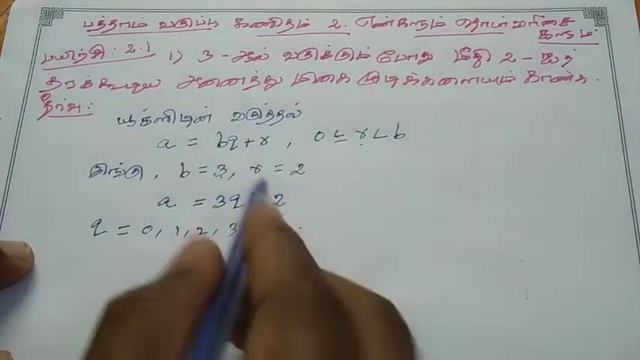 பத்தாம் வகுப்பு கணிதம் 2. எண்களும் தொடர்வரிசை
களும்
பயிற்சி: 2.1 1) 3-ஆல் வகுக்கும் போது மீதி 2-ஐத்
தரக்கூடிய அனைத்து மிகை முழுக்களையும் காண்க.
தீர்வு:
யூக்ளிடின் வகுத்தல்
a = bq + r, 0 ≤ r < b
இங்கு, b = 3, r = 2
a = 3q 2
q = 0, 1, 2, 3